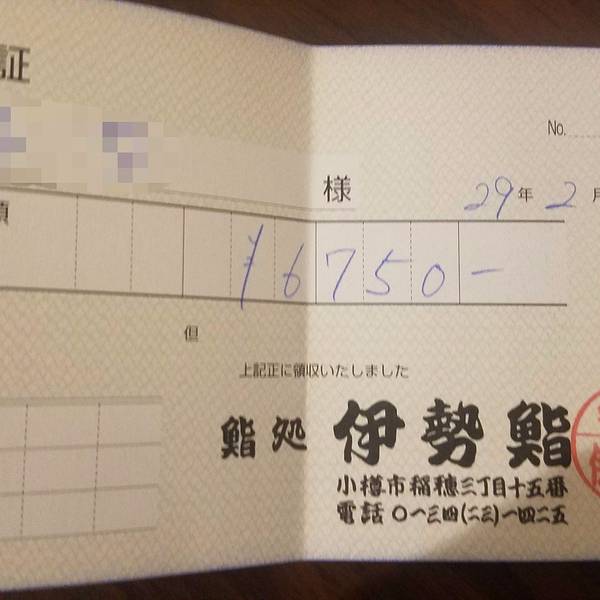 証
No.
様
29年2月
額
¥6750-
但
上記正に領収いたしました
鮨処 伊勢鮨
小樽市稲穂三丁目十五番
電話 〇一三四(二三)一四二五